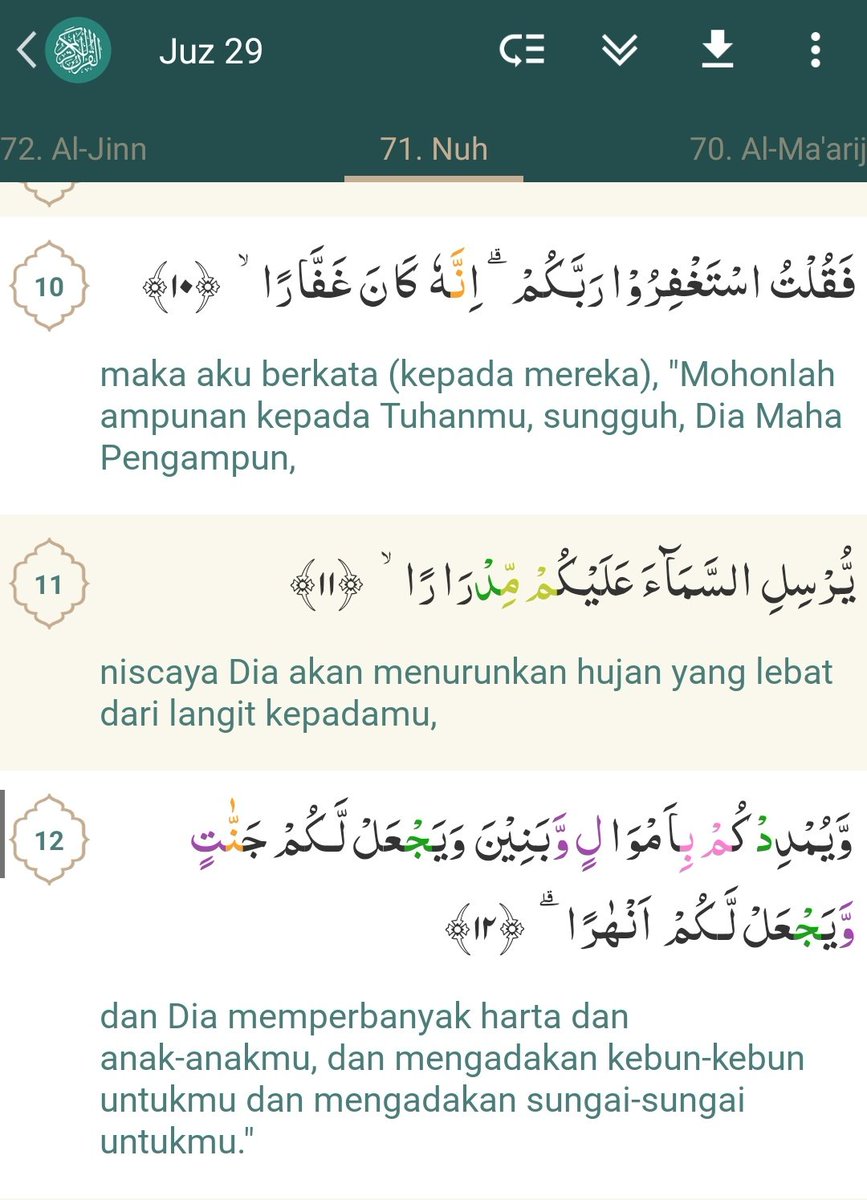 Juz 29
72. Al-Jinn 71. Nuh 70. Al-Ma'arij
10
فَقُلْتُ اسْتَغْفِرُوْا رَبَّكُمْ ۗ اِنَّهٗ كَانَ غَفَّارًا ۙ ﴿١٠﴾
maka aku berkata (kepada mereka), "Mohonlah
ampunan kepada Tuhanmu, sungguh, Dia Maha
Pengampun,
11
يُّرْسِلِ السَّمَاۤءَ عَلَيْكُمْ مِّدْرَارًا ۙ ﴿١١﴾
niscaya Dia akan menurunkan hujan yang lebat
dari langit kepadamu,
12
وَّيُمْدِدْكُمْ بِاَمْوَالٍ وَّبَنِيْنَ وَيَجْعَلْ لَّكُمْ جَنّٰتٍ
وَّيَجْعَلْ لَّكُمْ اَنْهٰرًا ۗ ﴿١٢﴾
dan Dia memperbanyak harta dan
anak-anakmu, dan mengadakan kebun-kebun
untukmu dan mengadakan sungai-sungai
untukmu."